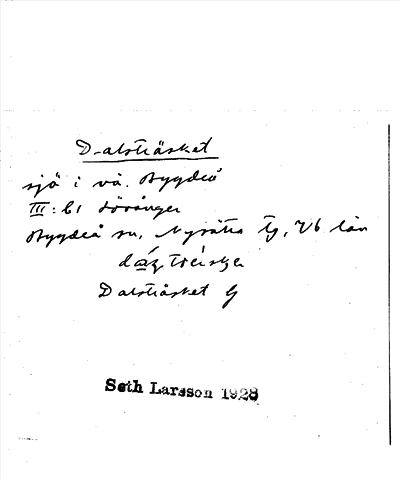 Dalsträsket
sjö i vä. Bygdeå
III: b1 Lövånger
Bygdeå sn, Nysätra tg, Vb län
Dalsträsket G
Seth Larsson 1928